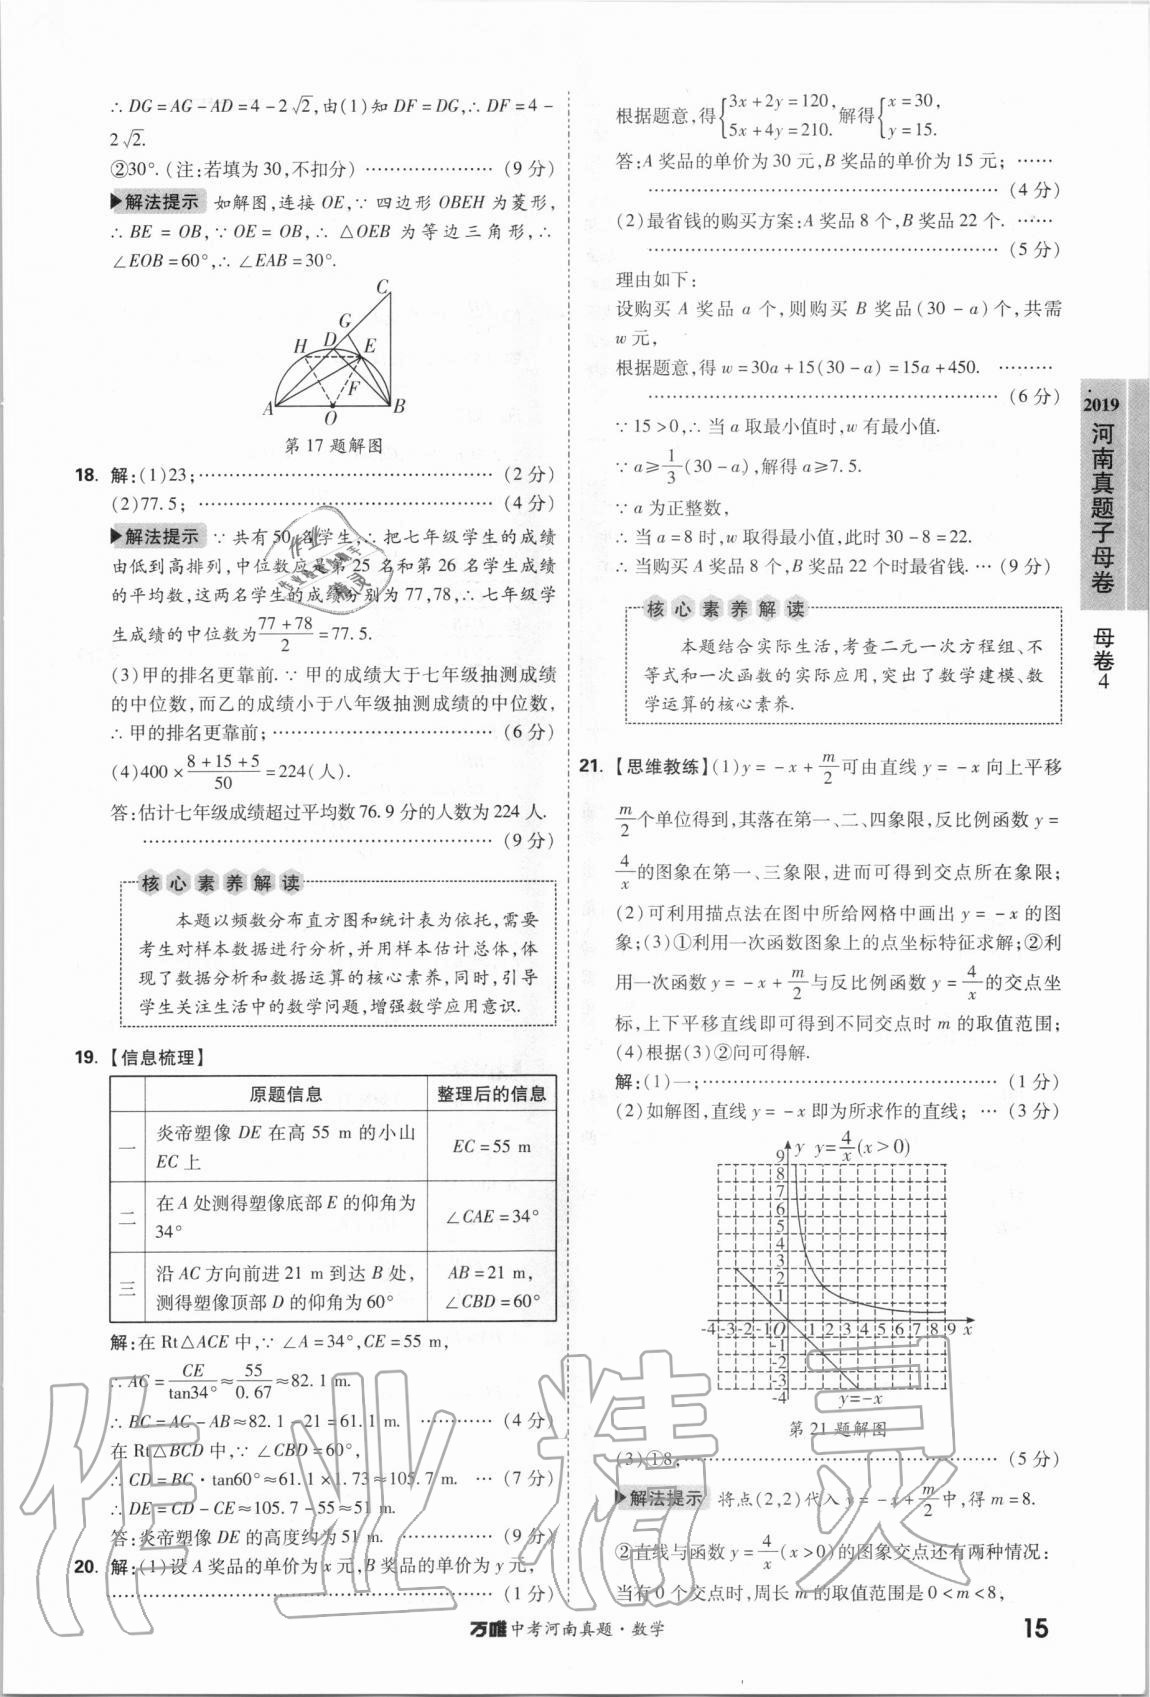 ∴DG=AG-AD=4-2√2,由(1)知DF=DG,∴DF=4-
2√2.
②30°.(注:若填为30,不扣分)…………………(9分)
▶解法提示 如解图,连接OE,∵四边形OBEH为菱形,
∴BE=OB,∵OE=OB,∴△OEB为等边三角形,∴
∠EOB=60°,∴∠EAB=30°.
C
G
H D E
F
A O B
第17题解图
18. 解:(1)23;……………………………………(2分)
(2)77.5;……………………………………(4分)
▶解法提示 ∵共有50名学生,∴把七年级学生的成绩
由低到高排列,中位数应是第25名和第26名学生成绩
的平均数,这两名学生的成绩分别为77,78,∴七年级学
生成绩的中位数为(77+78)/2=77.5.
(3)甲的排名更靠前.∵甲的成绩大于七年级抽测成绩
的中位数,而乙的成绩小于八年级抽测成绩的中位数,
∴甲的排名更靠前;……………………………(6分)
(4)400×(8+15+5)/50=224(人).
答:估计七年级成绩超过平均数76.9分的人数为224人.
……………………………………………(9分)
核心素养解读
本题以频数分布直方图和统计表为依托,需要
考生对样本数据进行分析,并用样本估计总体,体
现了数据分析和数据运算的核心素养,同时,引导
学生关注生活中的数学问题,增强数学应用意识.
19.【信息梳理】
原题信息 整理后的信息
一 炎帝塑像DE在高55 m的小山EC上 EC=55 m
二 在A处测得塑像底部E的仰角为34° ∠CAE=34°
三 沿AC方向前进21 m到达B处,测得塑像顶部D的仰角为60° AB=21 m,∠CBD=60°
解:在Rt△ACE中,∵∠A=34°,CE=55 m,
∴AC=CE/tan34°≈55/0.67≈82.1 m.
∴BC=AC-AB≈82.1-21=61.1 m.…………(4分)
在Rt△BCD中,∵∠CBD=60°,
∴CD=BC·tan60°≈61.1×1.73≈105.7 m.…(7分)
∴DE=CD-CE≈105.7-55≈51 m.
答:炎帝塑像DE的高度约为51 m.……………(9分)
20. 解:(1)设A奖品的单价为x元,B奖品的单价为y元,
……………………………………………(1分)
根据题意,得{3x+2y=120, 5x+4y=210. 解得{x=30, y=15.
答:A奖品的单价为30元,B奖品的单价为15元;……
……………………………………………(4分)
(2)最省钱的购买方案:A奖品8个,B奖品22个.……
……………………………………………(5分)
理由如下:
设购买A奖品a个,则购买B奖品(30-a)个,共需
w元,
根据题意,得w=30a+15(30-a)=15a+450.………
……………………………………………(6分)
∵15>0,∴当a取最小值时,w有最小值.
∵a≥1/3(30-a),解得a≥7.5.
∵a为正整数,
∴当a=8时,w取得最小值,此时30-8=22.
∴当购买A奖品8个,B奖品22个时最省钱.…(9分)
核心素养解读
本题结合实际生活,考查二元一次方程组、不
等式和一次函数的实际应用,突出了数学建模、数
学运算的核心素养.
21.【思维教练】(1)y=-x+m/2可由直线y=-x向上平移
m/2个单位得到,其落在第一、二、四象限,反比例函数y=
4/x的图象在第一、三象限,进而可得到交点所在象限;
(2)可利用描点法在图中所给网格中画出y=-x的图
象;(3)①利用一次函数图象上的点坐标特征求解;②利
用一次函数y=-x+m/2与反比例函数y=4/x的交点坐
标,上下平移直线即可得到不同交点时m的取值范围;
(4)根据(3)②问可得解.
解:(1)一;……………………………………(1分)
(2)如解图,直线y=-x即为所求作的直线;…(3分)
y y=4/x(x>0)
9
8
7
6
5
4
3
2
1
-4-3-2-1O 1 2 3 4 5 6 7 8 9 x
-1
-2
-3
-4
y=-x
第21题解图
(3)①8;……………………………………(5分)
▶解法提示 将点(2,2)代入y=-x+m/2中,得m=8.
②直线与函数y=4/x(x>0)的图象交点还有两种情况:
当有0个交点时,周长m的取值范围是0<m<8,
2019
河南真题子母卷
母卷4
万唯中考河南真题·数学
15
作业精灵